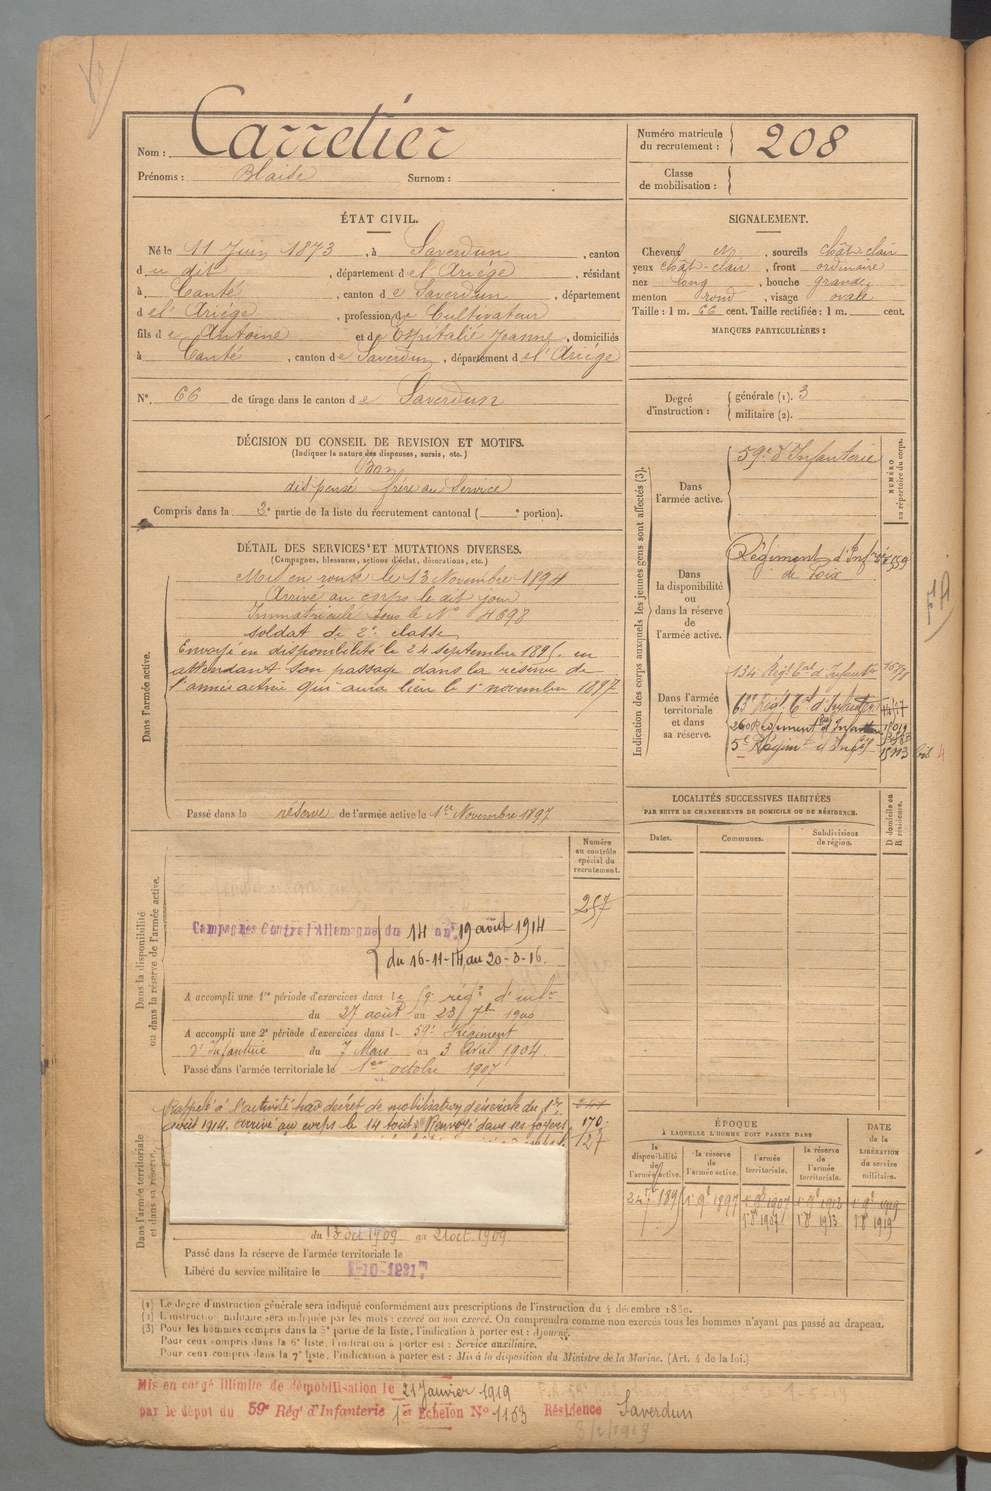 Nom : Carretier
Prénoms : Blaise Surnom :
Numéro matricule du recrutement : 208
Classe de mobilisation :
ÉTAT CIVIL.
Né le 11 Juin 1873, à Saverdun, canton
du dit, département de l'Ariége, résidant
à Canté, canton de Saverdun, département
de l'Ariége, profession de Cultivateur
fils de Antoine et de Ospitalié Jeanne, domiciliés
à Canté, canton de Saverdun, département de l'Ariége
N°. 66 de tirage dans le canton de Saverdun
SIGNALEMENT.
Cheveux, sourcils chât-clair
yeux chât-clair, front ordinaire
nez long, bouche grande
menton rond, visage ovale
Taille : 1 m. 66 cent. Taille rectifiée : 1 m. cent.
MARQUES PARTICULIÈRES :
Degré d'instruction : générale (1). 3
militaire (2).
DÉCISION DU CONSEIL DE REVISION ET MOTIFS.
(Indiquer la nature des dispenses, sursis, etc.)
Bon
dispensé frère au service
Compris dans la 2e partie de la liste du recrutement cantonal ( e portion).
DÉTAIL DES SERVICES ET MUTATIONS DIVERSES.
(Campagnes, blessures, actions d'éclat, décorations, etc.)
Dans l'armée active.
Mis en route le 13 Novembre 1894
Arrivé au corps le dit jour
Immatriculé sous le N° 4698
soldat de 2e classe
Envoyé en disponibilité le 24 septembre 1895, en
attendant son passage dans la réserve de
l'armée active qui aura lieu le 1er novembre 1897
Passé dans la réserve de l'armée active le 1er Novembre 1897
Indication des corps auxquels les jeunes gens sont affectés (3).
NUMÉRO au répertoire du corps.
Dans l'armée active.
59e d'Infanterie
Dans la disponibilité ou dans la réserve de l'armée active.
Régiment d'Infrie
de Foix
Dans l'armée territoriale et dans sa réserve.
134 Régt tal d'Infanterie
63e Régt tal d'Infanterie
260 Régiment d'Infanterie
5e Régimt d'Infie
LOCALITÉS SUCCESSIVES HABITÉES
PAR SUITE DE CHANGEMENTS DE DOMICILE OU DE RÉSIDENCE.
Dates. Communes. Subdivisions de région. D domicile ou R résidence.
Dans la disponibilité ou dans la réserve de l'armée active.
Numéro au contrôle spécial du recrutement.
257
Campagnes Contre l'Allemagne du 14 au 19 août 1914
du 16-11-14 au 20-3-16.
A accompli une 1re période d'exercices dans le 59e régt d'infie
du 27 août au 23 7b 1900
A accompli une 2e période d'exercices dans l- 59e Régiment
d'Infanterie du 7 Mars au 3 Avril 1904.
Passé dans l'armée territoriale le 1er octobre 1907
Dans l'armée territoriale et dans sa réserve.
Rappelé à l'activité par décret de mobilisation générale du 1er
août 1914. arrivé au corps le 14 août. Renvoyé dans ses foyers
170
127
du 13 oct 1909 au 21 oct 1909
Passé dans la réserve de l'armée territoriale le
Libéré du service militaire le
ÉPOQUE
À LAQUELLE L'HOMME DOIT PASSER DANS
la disponibilité de l'armée active. la réserve de l'armée active. l'armée territoriale. la réserve de l'armée territoriale.
DATE de la LIBÉRATION du service militaire.
24 7bre 1895 1er 9b 1897 1er 9b 1907 1er 9b 1919
1er 8b 1907 1er 8b 1913 1er 8b 1919
(1) Le degré d'instruction générale sera indiqué conformément aux prescriptions de l'instruction du 4 décembre 1889.
(2) L'instruction militaire sera indiquée par les mots : exercé ou non exercé. On comprendra comme non exercés tous les hommes n'ayant pas passé au drapeau.
(3) Pour les hommes compris dans la 5e partie de la liste, l'indication à porter est : Ajourné.
Pour ceux compris dans la 6e liste, l'indication à porter est : Service auxiliaire.
Pour ceux compris dans la 7e liste, l'indication à porter est : Mis à la disposition du Ministre de la Marine. (Art. 4 de la loi.)
Mis en congé illimité de démobilisation le 21 Janvier 1919
par le dépôt du 59e Régt d'Infanterie 1er Echelon N° 1153 Résidence Saverdun